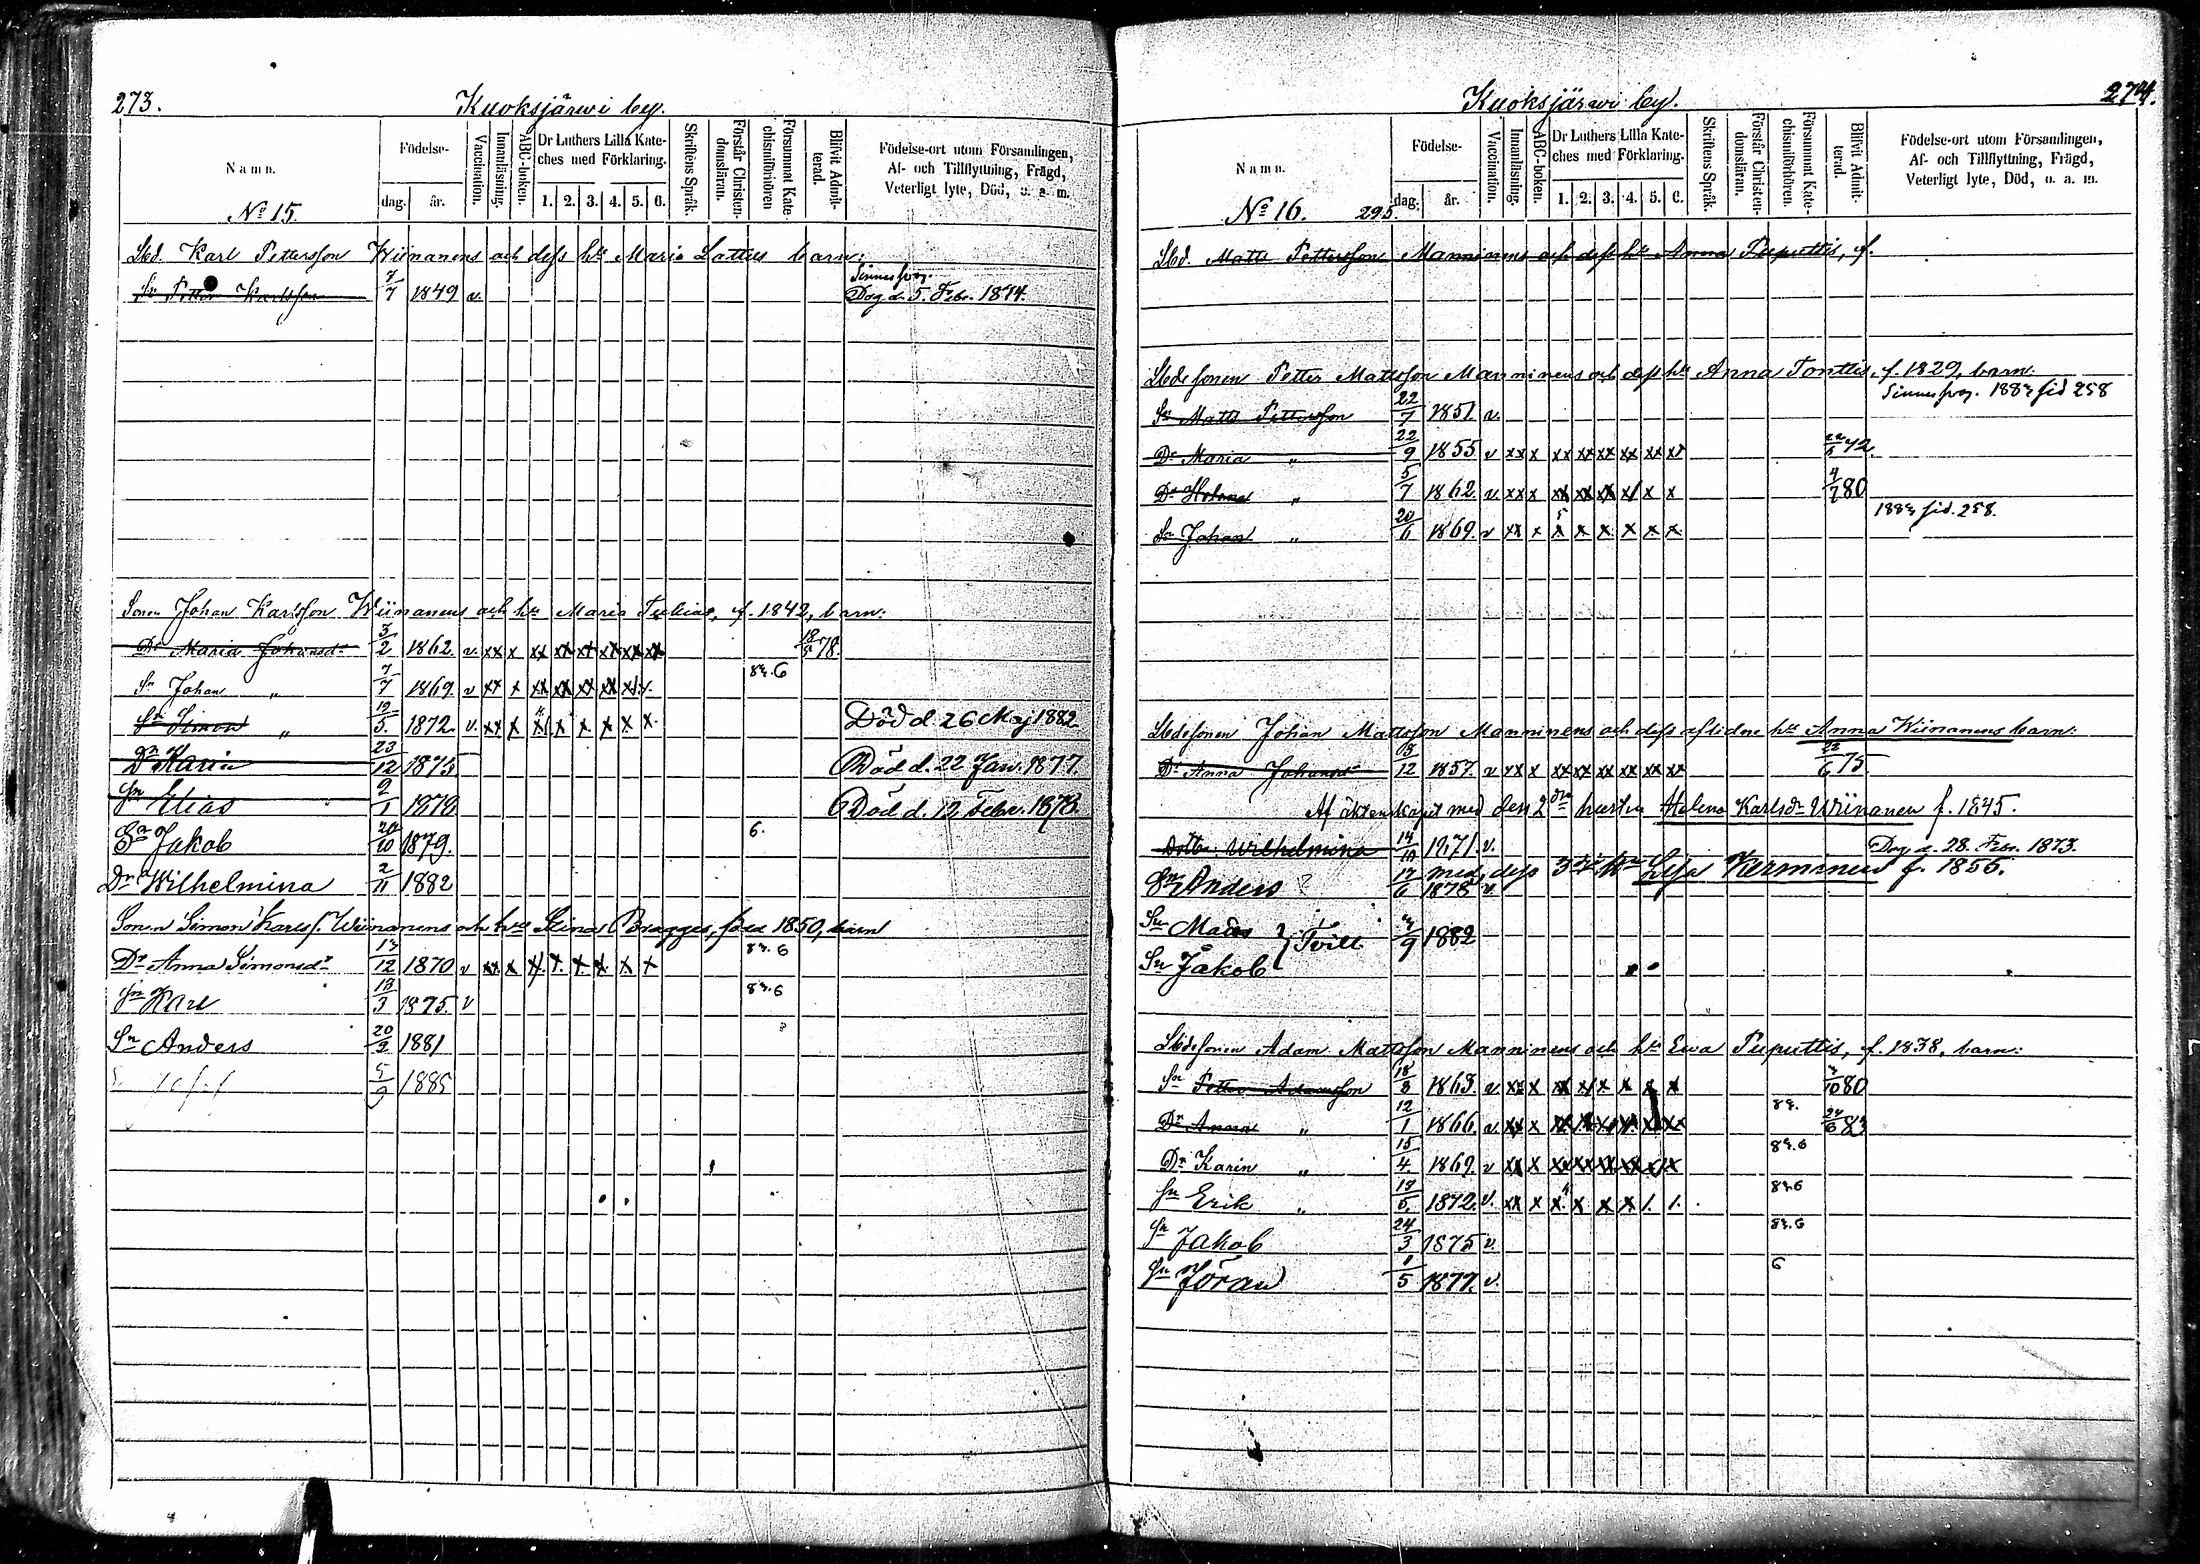 273.
Kuoksjärwi by.
Namn.
Födelse-
dag.
år.
Vaccination.
Innanläsning.
ABC-boken.
Dr Luthers Lilla Kate-
ches med Förklaring.
1. 2. 3. 4. 5. 6.
Skriftens Språk.
Förstår Christen-
domsläran.
Försummat Kate-
chismiförhören
Blifvit Admit-
terad.
Födelse-ort utom Församlingen,
Af- och Tillflyttning, Frägd,
Veterligt lyte, Död, o. a. m.
No 15.
Lbd. Karl Pettersson Wiinanens och dess hu Maria Lattus barn:
Sn Petter Karlsson 7/7 1849 v. Sinnessvag. Dog d. 5. Febr. 1874.
Sonen Johan Karlsson Wiinanens och hu Maria Tukias, f. 1842, barn:
Dr Maria Johansdr 3/2 1862. v. xx x xx xx xx xx xx xx 18/5 78.
Sn Johan " 7/7 1869. v xx x xx xx xx xx 83.6
Sn Simon " 19/5. 1872. v. xx x x x x x x Död d. 26 Maj 1882
Dr Karin 23/12 1875 Död d. 22 Jan. 1877.
Sn Elias 9/1 1878 Död d. 12 Febr. 1878.
Sn Jakob 20/10 1879. 6.
Dr Wilhelmina 2/11 1882
Sonen Simon Karls. Wiinanens och hu Stina Bragge, född 1850, barn
Dr Anna Simonsdr 13/12 1870 v xx x x x x x x x 83.6
Sn Karl 13/3 1875. v 83.6
Sn Anders 20/9 1881
5/9 1885
274.
Kuoksjärwi by.
Namn.
Födelse-
dag.
år.
Vaccination.
Innanläsning.
ABC-boken.
Dr Luthers Lilla Kate-
ches med Förklaring.
1. 2. 3. 4. 5. 6.
Skriftens Språk.
Förstår Christen-
domsläran.
Försummat Kate-
chismiförhören.
Blifvit Admit-
terad.
Födelse-ort utom Församlingen,
Af- och Tillflyttning, Frägd,
Veterligt lyte, Död, o. a. m.
No 16. 295.
Lbd. Matts Pettersson Manninens och dess hu Anna Puputtis, f.
Lbdesonen Petter Mattsson Manninens och dess hu Anna Tonttis, f. 1829, barn:
Sn Matts Pettersson 22/7 1851. v. Sinnessvag. 1883 sid 258
Dr Maria " 22/9 1855 v xx x xx xx xx xx xx xx 72.
Dr Helena " 5/7 1862. v. xx x xx xx xx x x x 80
Sn Johan " 20/6 1869. v xx x x x x x x x 1883 sid. 258.
Lbdesonen Johan Mattsson Manninens och dess aflidne hu Anna Wiinanens barn:
Dr Anna Johansdr 1857. v xx x xx xx xx xx xx xx 22/6 75.
Af äktenskapet med den 2dra hustrun Helena Karlsdr Wiinanen f. 1845.
Dottr. Wilhelmina 14/10 1871. v. Dog d. 28. Febr. 1873.
med dess 3dje hu Lisa Kerminen f. 1856.
Sn Anders ? 17/6 1878 v.
Sn Mats } Tvill. 1882
Sn Jakob
Lbdesonen Adam Mattsson Manninens och hu Ewa Puputtis, f. 1838, barn:
Sn Petter Adamsson 18/3 1863. v xx x xx x x x x x 80
Dr Anna " 12/1 1866. v. xx x 83. 24/6 83
Dr Karin " 15/4. 1869. v xx x xx xx xx xx x x 83.6
Sn Erik " 13/5. 1872. v. xx x x x x x 1. 1. 83.6
Sn Jakob 24/3 1875 v. 83.6
Sn Jöran 1/5 1877. v. 6